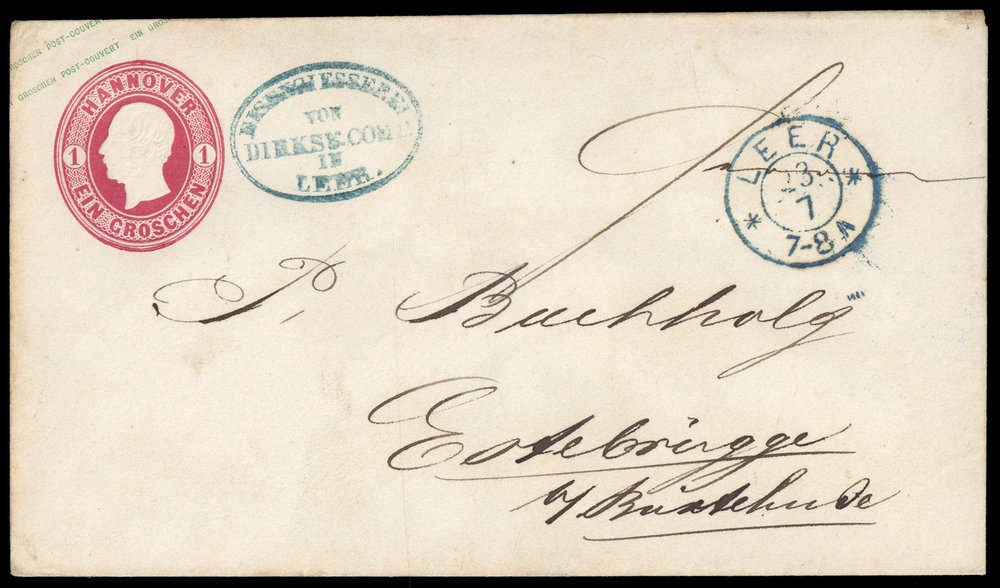 GROSCHEN POST-COUVERT EIN GROS
GROSCHEN POST-COUVERT EIN GROSCHEN
HANNOVER
1 1
EIN GROSCHEN
EISENGIESSEREI
VON
DIRKS & COMP
IN
LEER.
LEER
23
7
7-8 A
P. Buchholz
Estebrügge
b/ Buxtehude